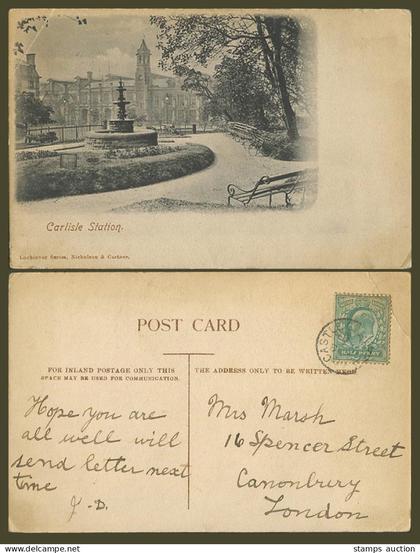 Carlisle Station.
Lochinver Series, Nicholson & Cartner.
POST CARD
FOR INLAND POSTAGE ONLY THIS
SPACE MAY BE USED FOR COMMUNICATION.
THE ADDRESS ONLY TO BE WRITTEN HERE
HALF PENNY
CAST
Hope you are
all well will
send letter next
time
J. D.
Mrs Marsh
16 Spencer Street
Canonbury
London
stamps auction